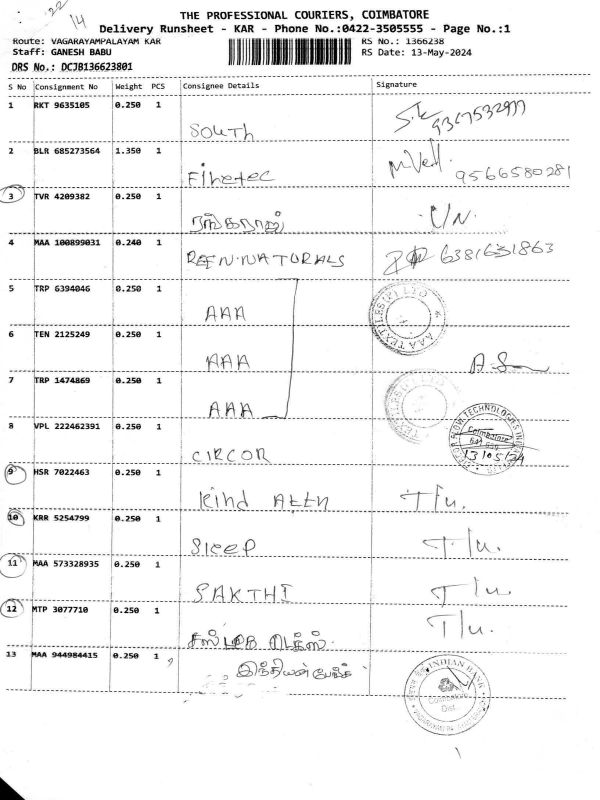 22
14
THE PROFESSIONAL COURIERS, COIMBATORE
Delivery Runsheet - KAR - Phone No.:0422-3505555 - Page No.:1
Route: VAGARAYAMPALAYAM KAR RS No.: 1366238
Staff: GANESH BABU RS Date: 13-May-2024
DRS No.: DCJB136623801
S No Consignment No Weight PCS Consignee Details Signature
1 RKT 9635105 0.250 1
South 9367532977
2 BLR 685273564 1.350 1
Finetec 9566580281
3 TVR 4209382 0.250 1
ரங்கராஜ்
4 MAA 100899031 0.240 1
REEN.NATURALS 6381631863
5 TRP 6394046 0.250 1
AAA
AAA TEXTILES (P) LTD
6 TEN 2125249 0.250 1
AAA
7 TRP 1474869 0.250 1
AAA
8 VPL 222462391 0.250 1
CIRCOR
FLOW TECHNOLOGIES
Coimbatore
13/05/24
9 HSR 7022463 0.250 1
Kind Attn T/u.
10 KRR 5254799 0.250 1
Sleep T/u.
11 MAA 573328935 0.250 1
SAKTHI T/u.
12 MTP 3077710 0.250 1
T/u.
13 MAA 944984415 0.250 1
இந்தியன் பேங்க்
INDIAN BANK
Coimbatore
Dist.